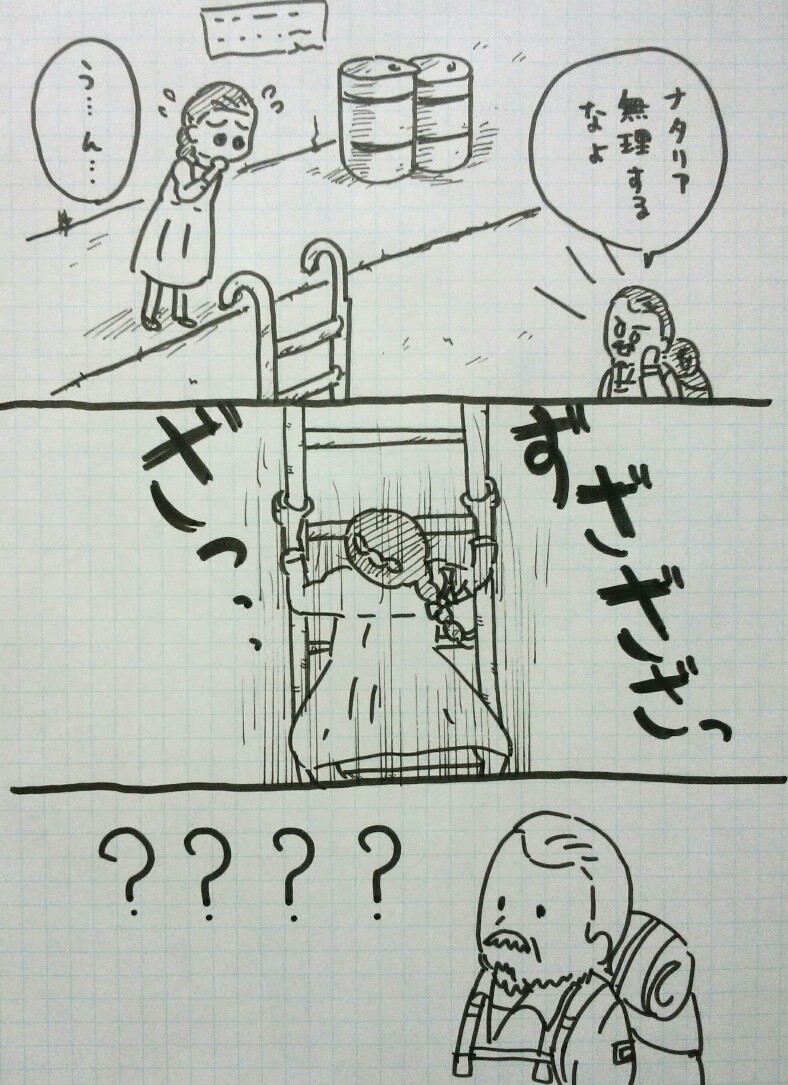 ナタリア
無理する
なよ
う…ん…
ずざざざっ
ざっ
？？？？